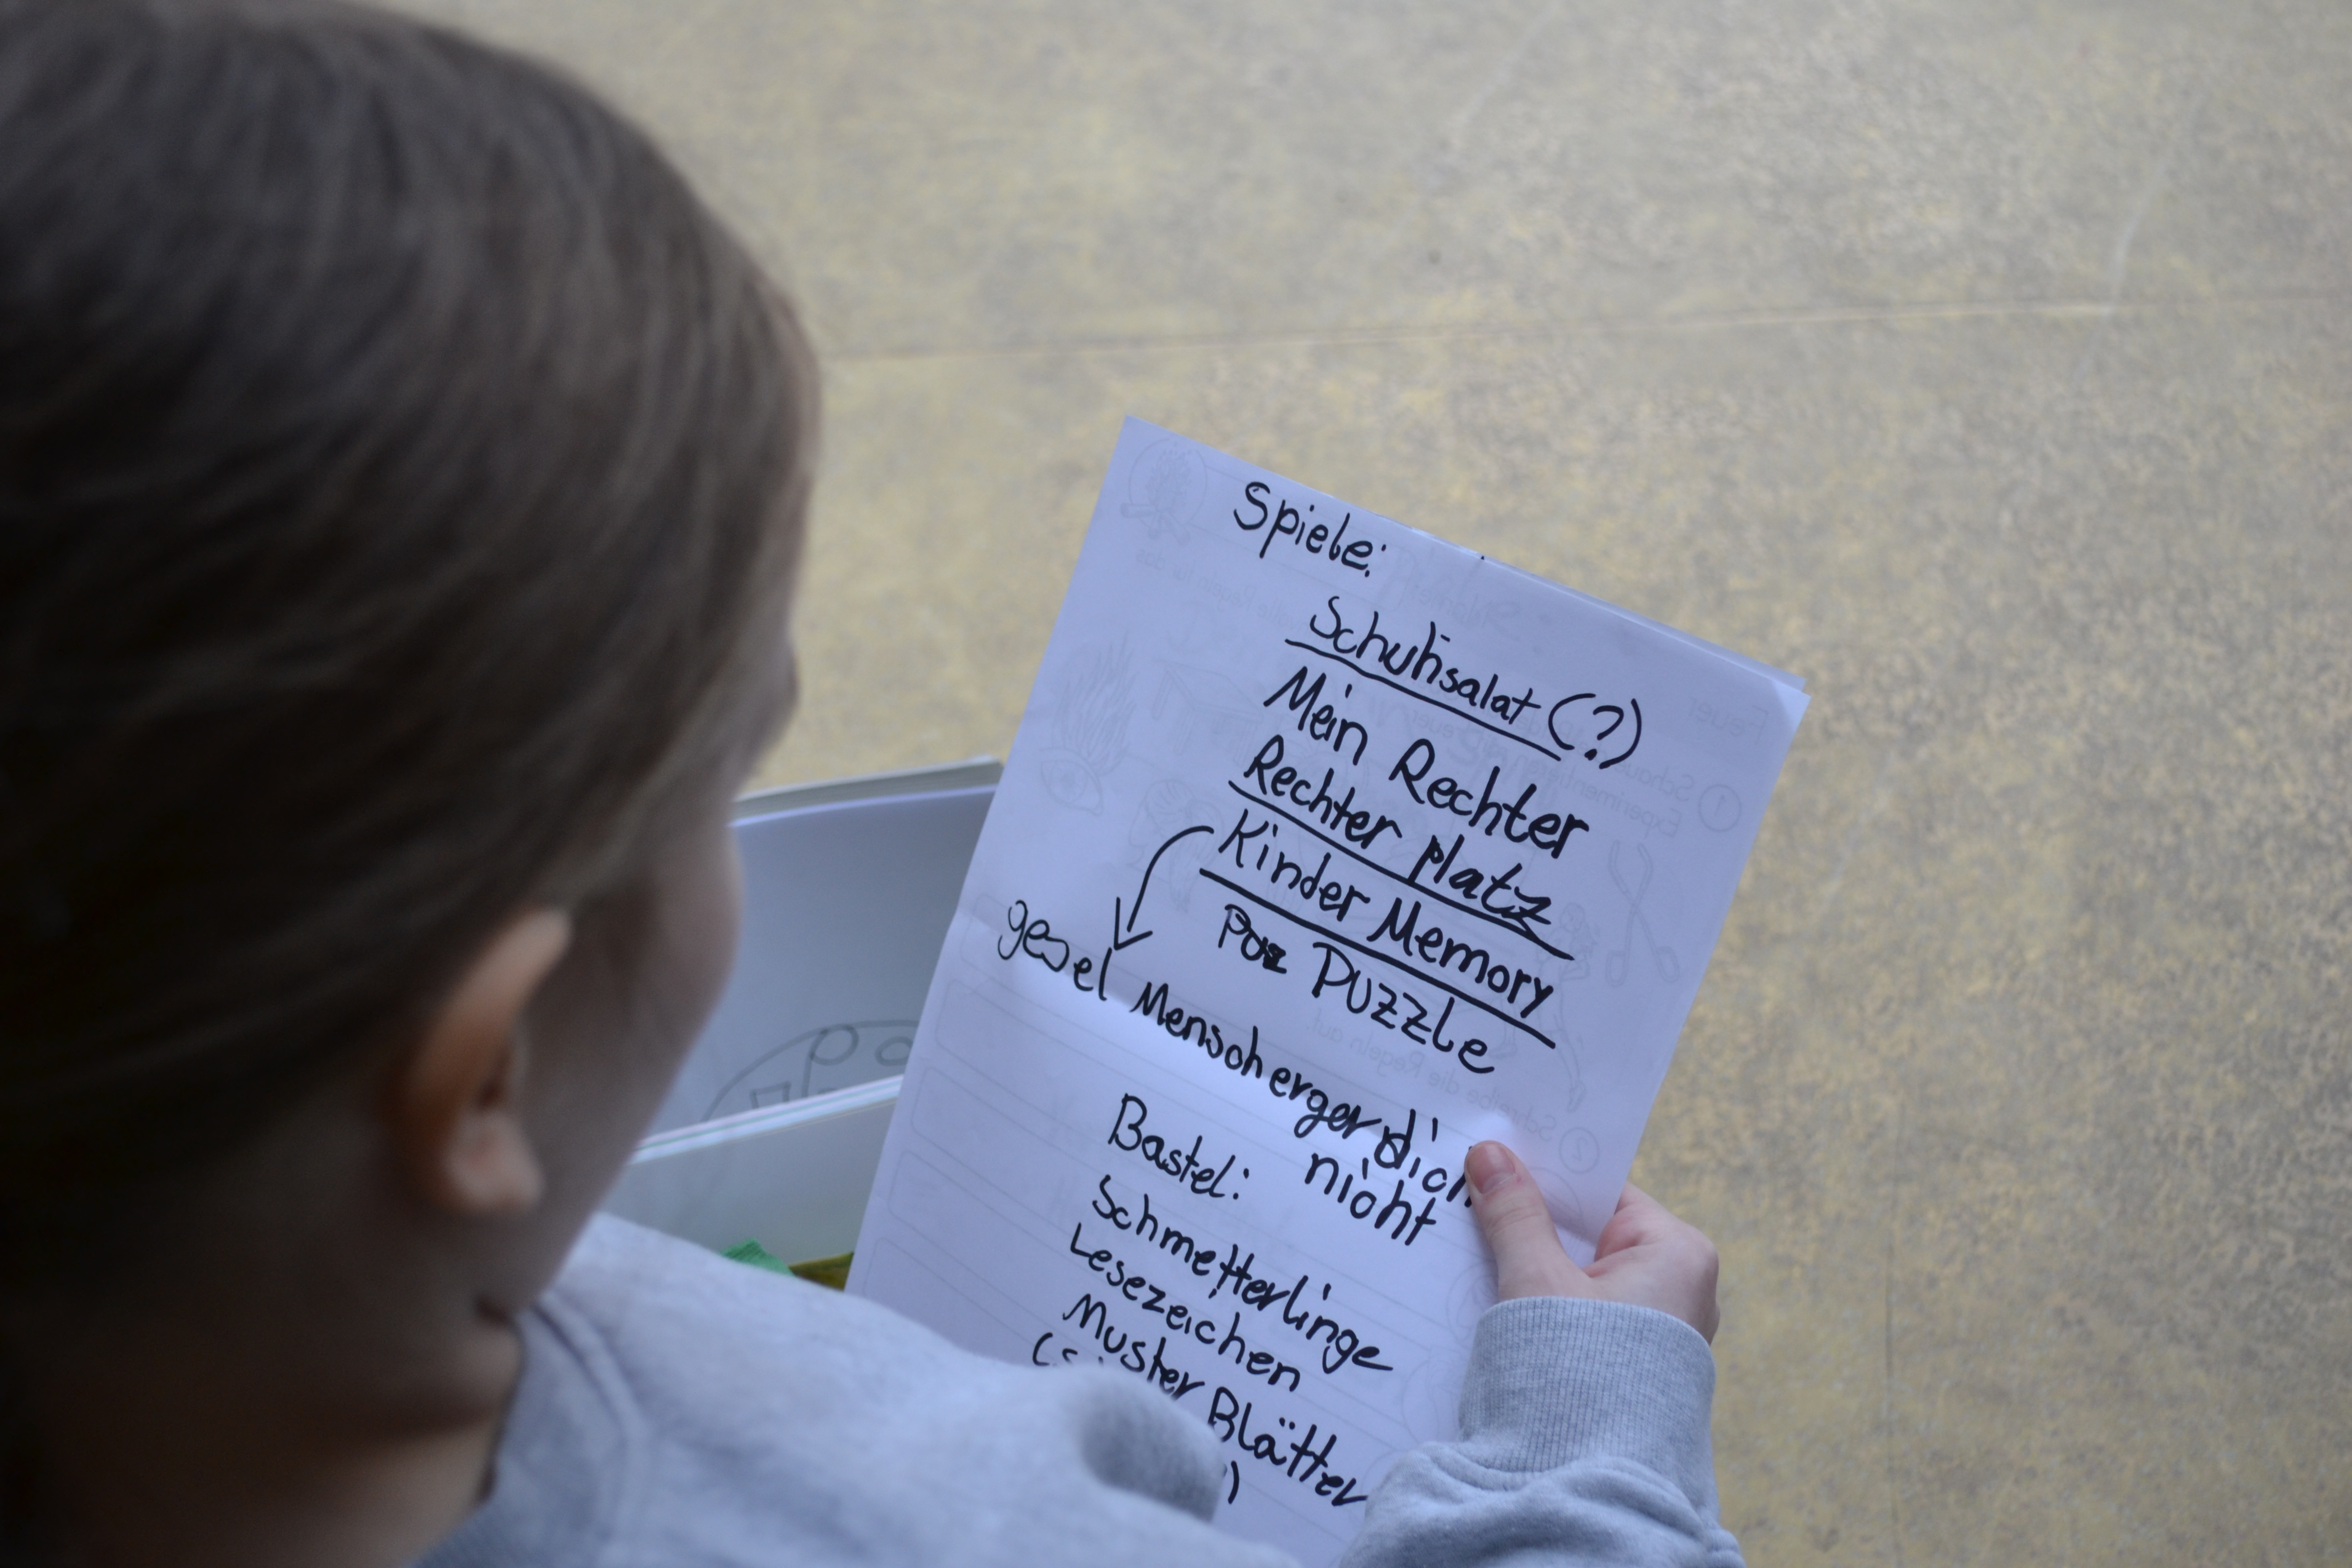 Spiele:
Schuhsalat (?)
Mein Rechter
Rechter platz
Kinder Memory
Puzzle
Menschergerdich
nicht
Bastel:
Schmetterlinge
Lesezeichen
Muster Blätter